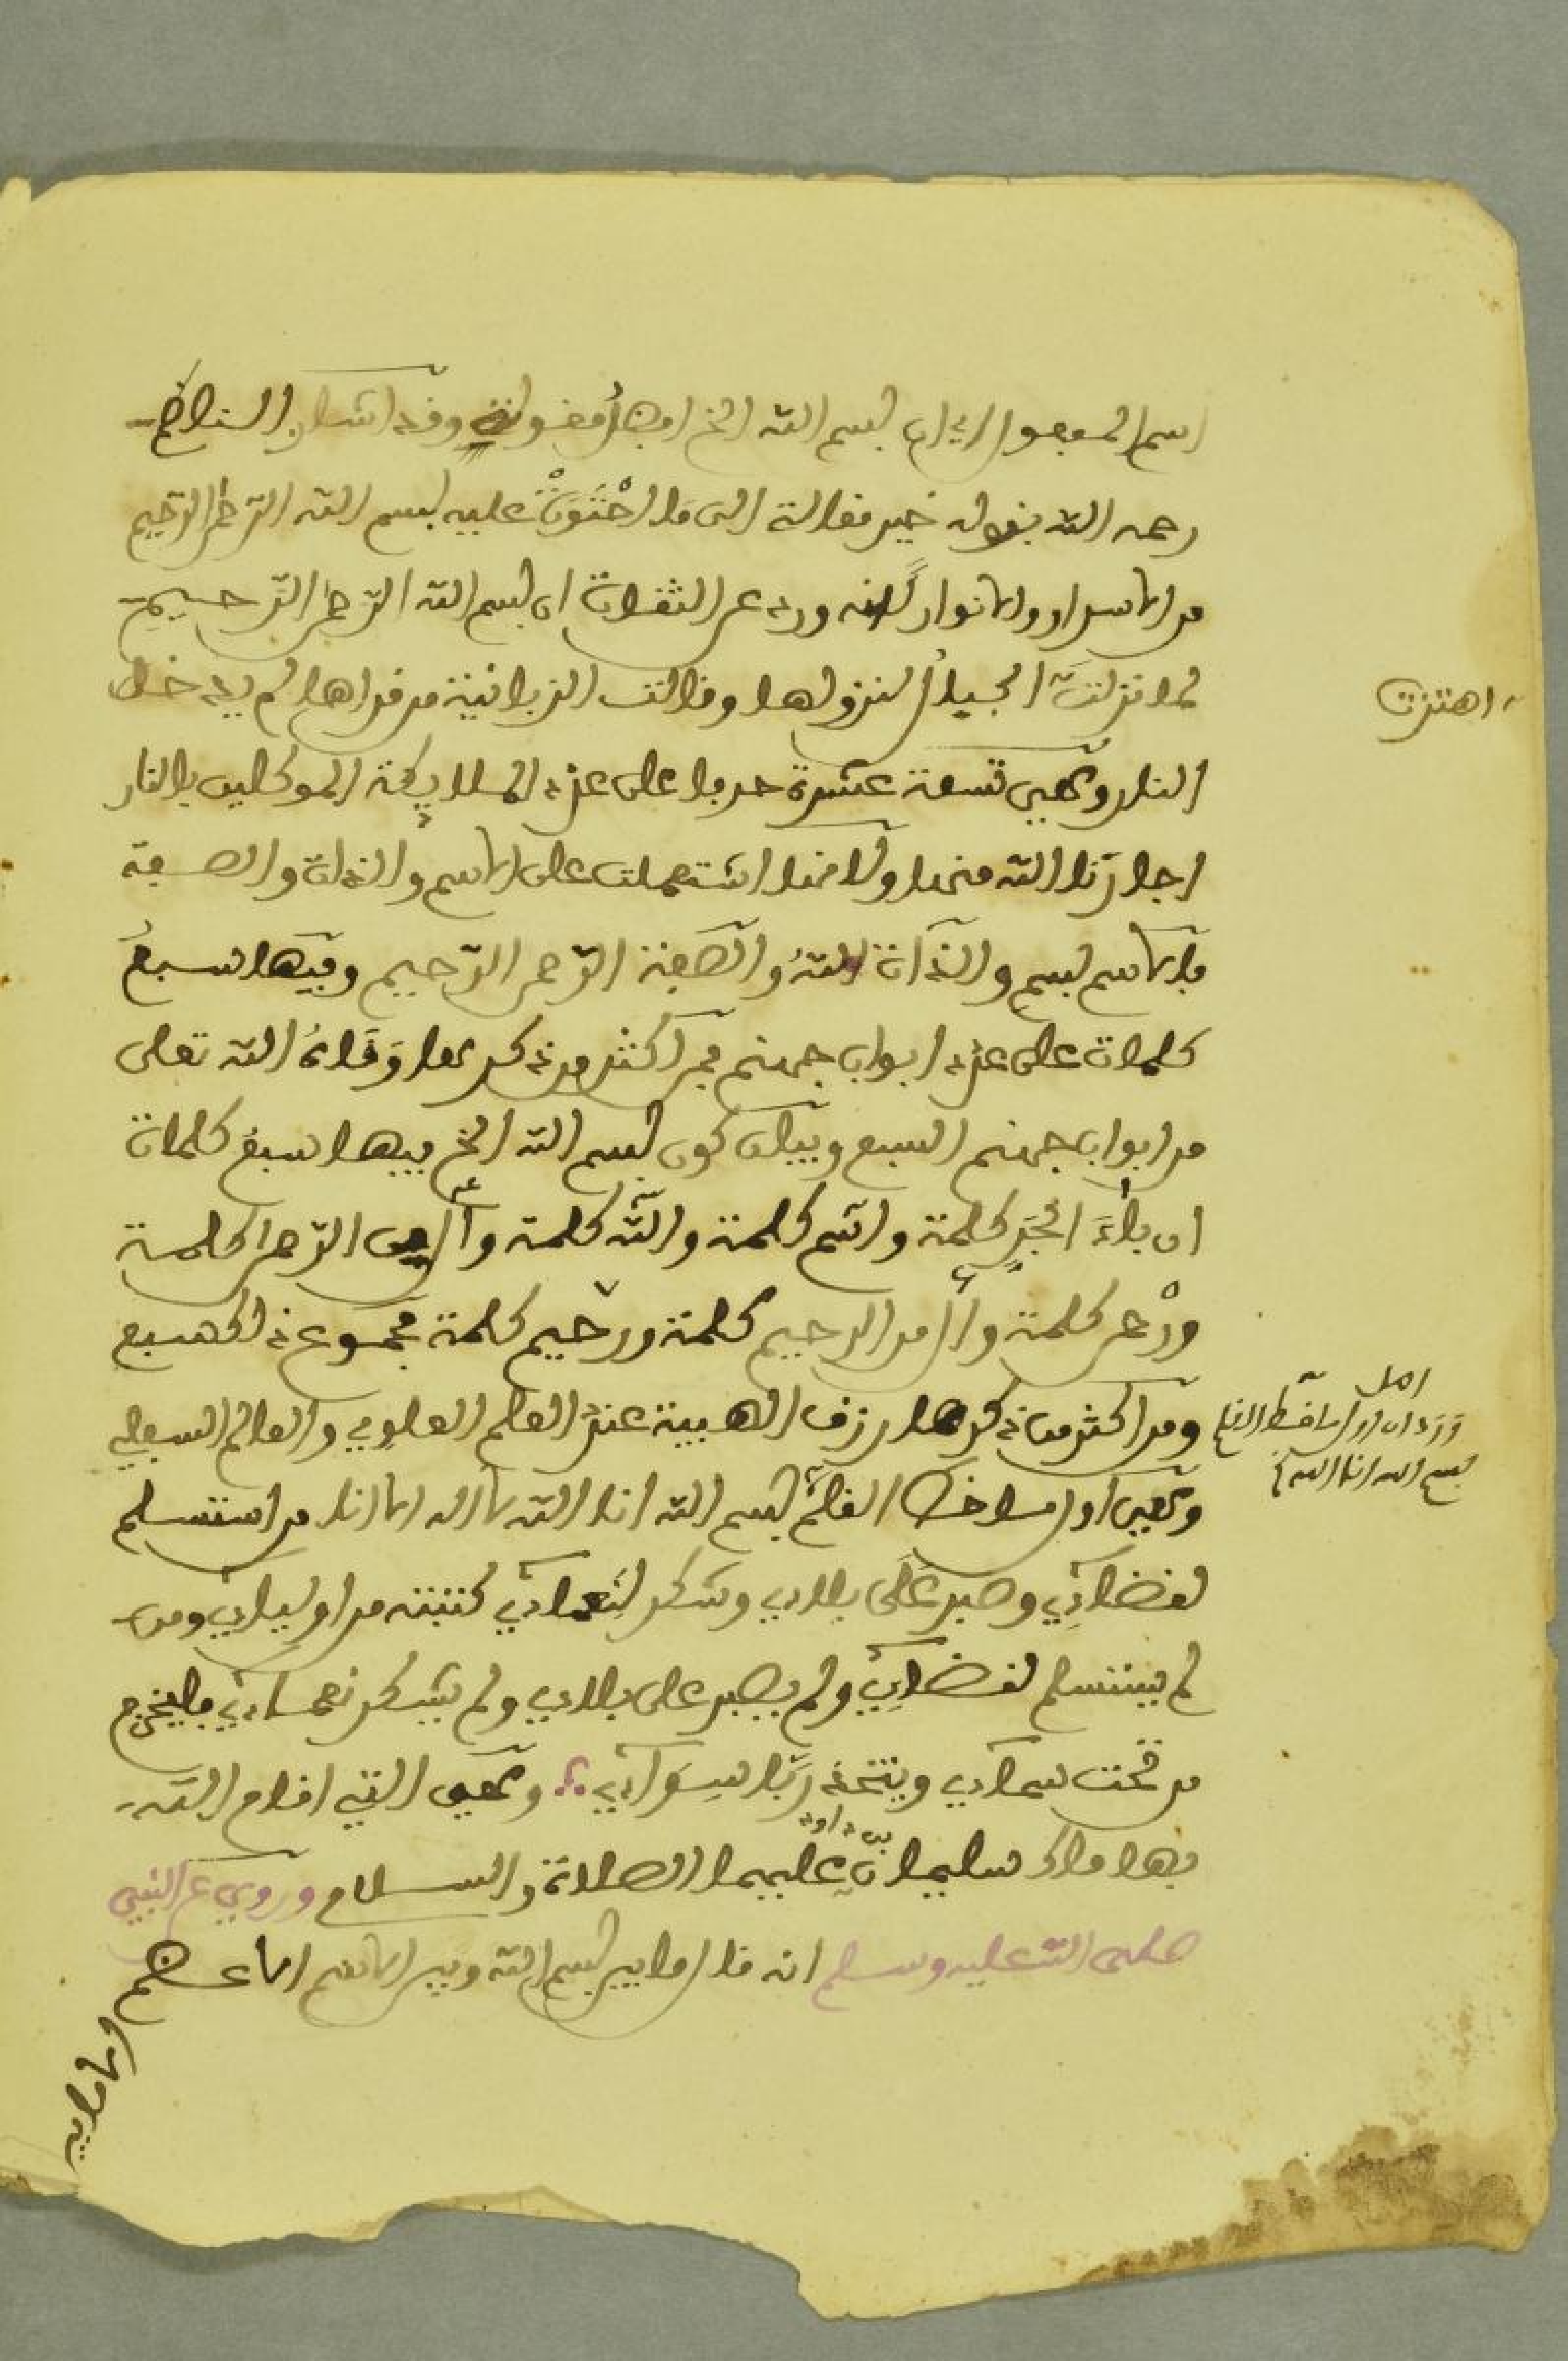 اسم المفعول اي ان بسم الله الخ افضل مقولة وقد اشار الناظم
رحمه الله بقوله خير مقالة الى ما احْتَوَتْ عليه بسم الله الرحمن الرحيم
من الاسرار والانوار لانه ورد عن الثقات ان بسم الله الرحمن الرحيم
لما نزلت الجبال لنزولها وقالت الزبانية من قراها لم يدخل
اهتزت
النار وهي تسعة عشرة حرفا على عدد الملايكة الموكلين بالنار
اجارنا الله منها ولانها اشتملت على الاسم والذات والصفة
فالاسم بسم والذات اللهُ والصفة الرحمن الرحيم وفيها سبعُ
كلمات على عدد ابواب جهنم فمن اكثر من ذكرها وَقَاهُ الله تعلى
من ابواب جهنم السبع وبيان كون بسم الله الخ فيها سبع كلمات
ان باءَ الجرِ كلمة واسم كلمة والله كلمة وأل من الرحمن كلمة
ورحمن كلمة وأل من الرحيم كلمة ورحيم كلمة مجموع ذلك سبع
ومن اكثر من ذكرها رزق الهيبة عند العلم العلوي والعالم السفلي
وهي اول ما خط القلم بسم الله انا الله لا اله الا انا من استسلم
وَرَدَ ان اول ما خط القلم
بسم الله انا الله
لقضاءي وصبر عَلَى بلاءي وشكر لِنَعماءي كتبته من اولياءي ومن
لم يستسلم لقضاءي ولم يصبر على بلاءي ولم يشكر نعماءي فليخرج
من تحت سماءي ويتخذ رَبا سِوَاءي وهي التي اقام الله
بها ملك سليمان بن داود عليهما الصلاة والسلام وروي عن النبي
صلى الله عليه وسلم انه قال ما بين بسم الله وبين الاسم الاعظم
الا ما بين